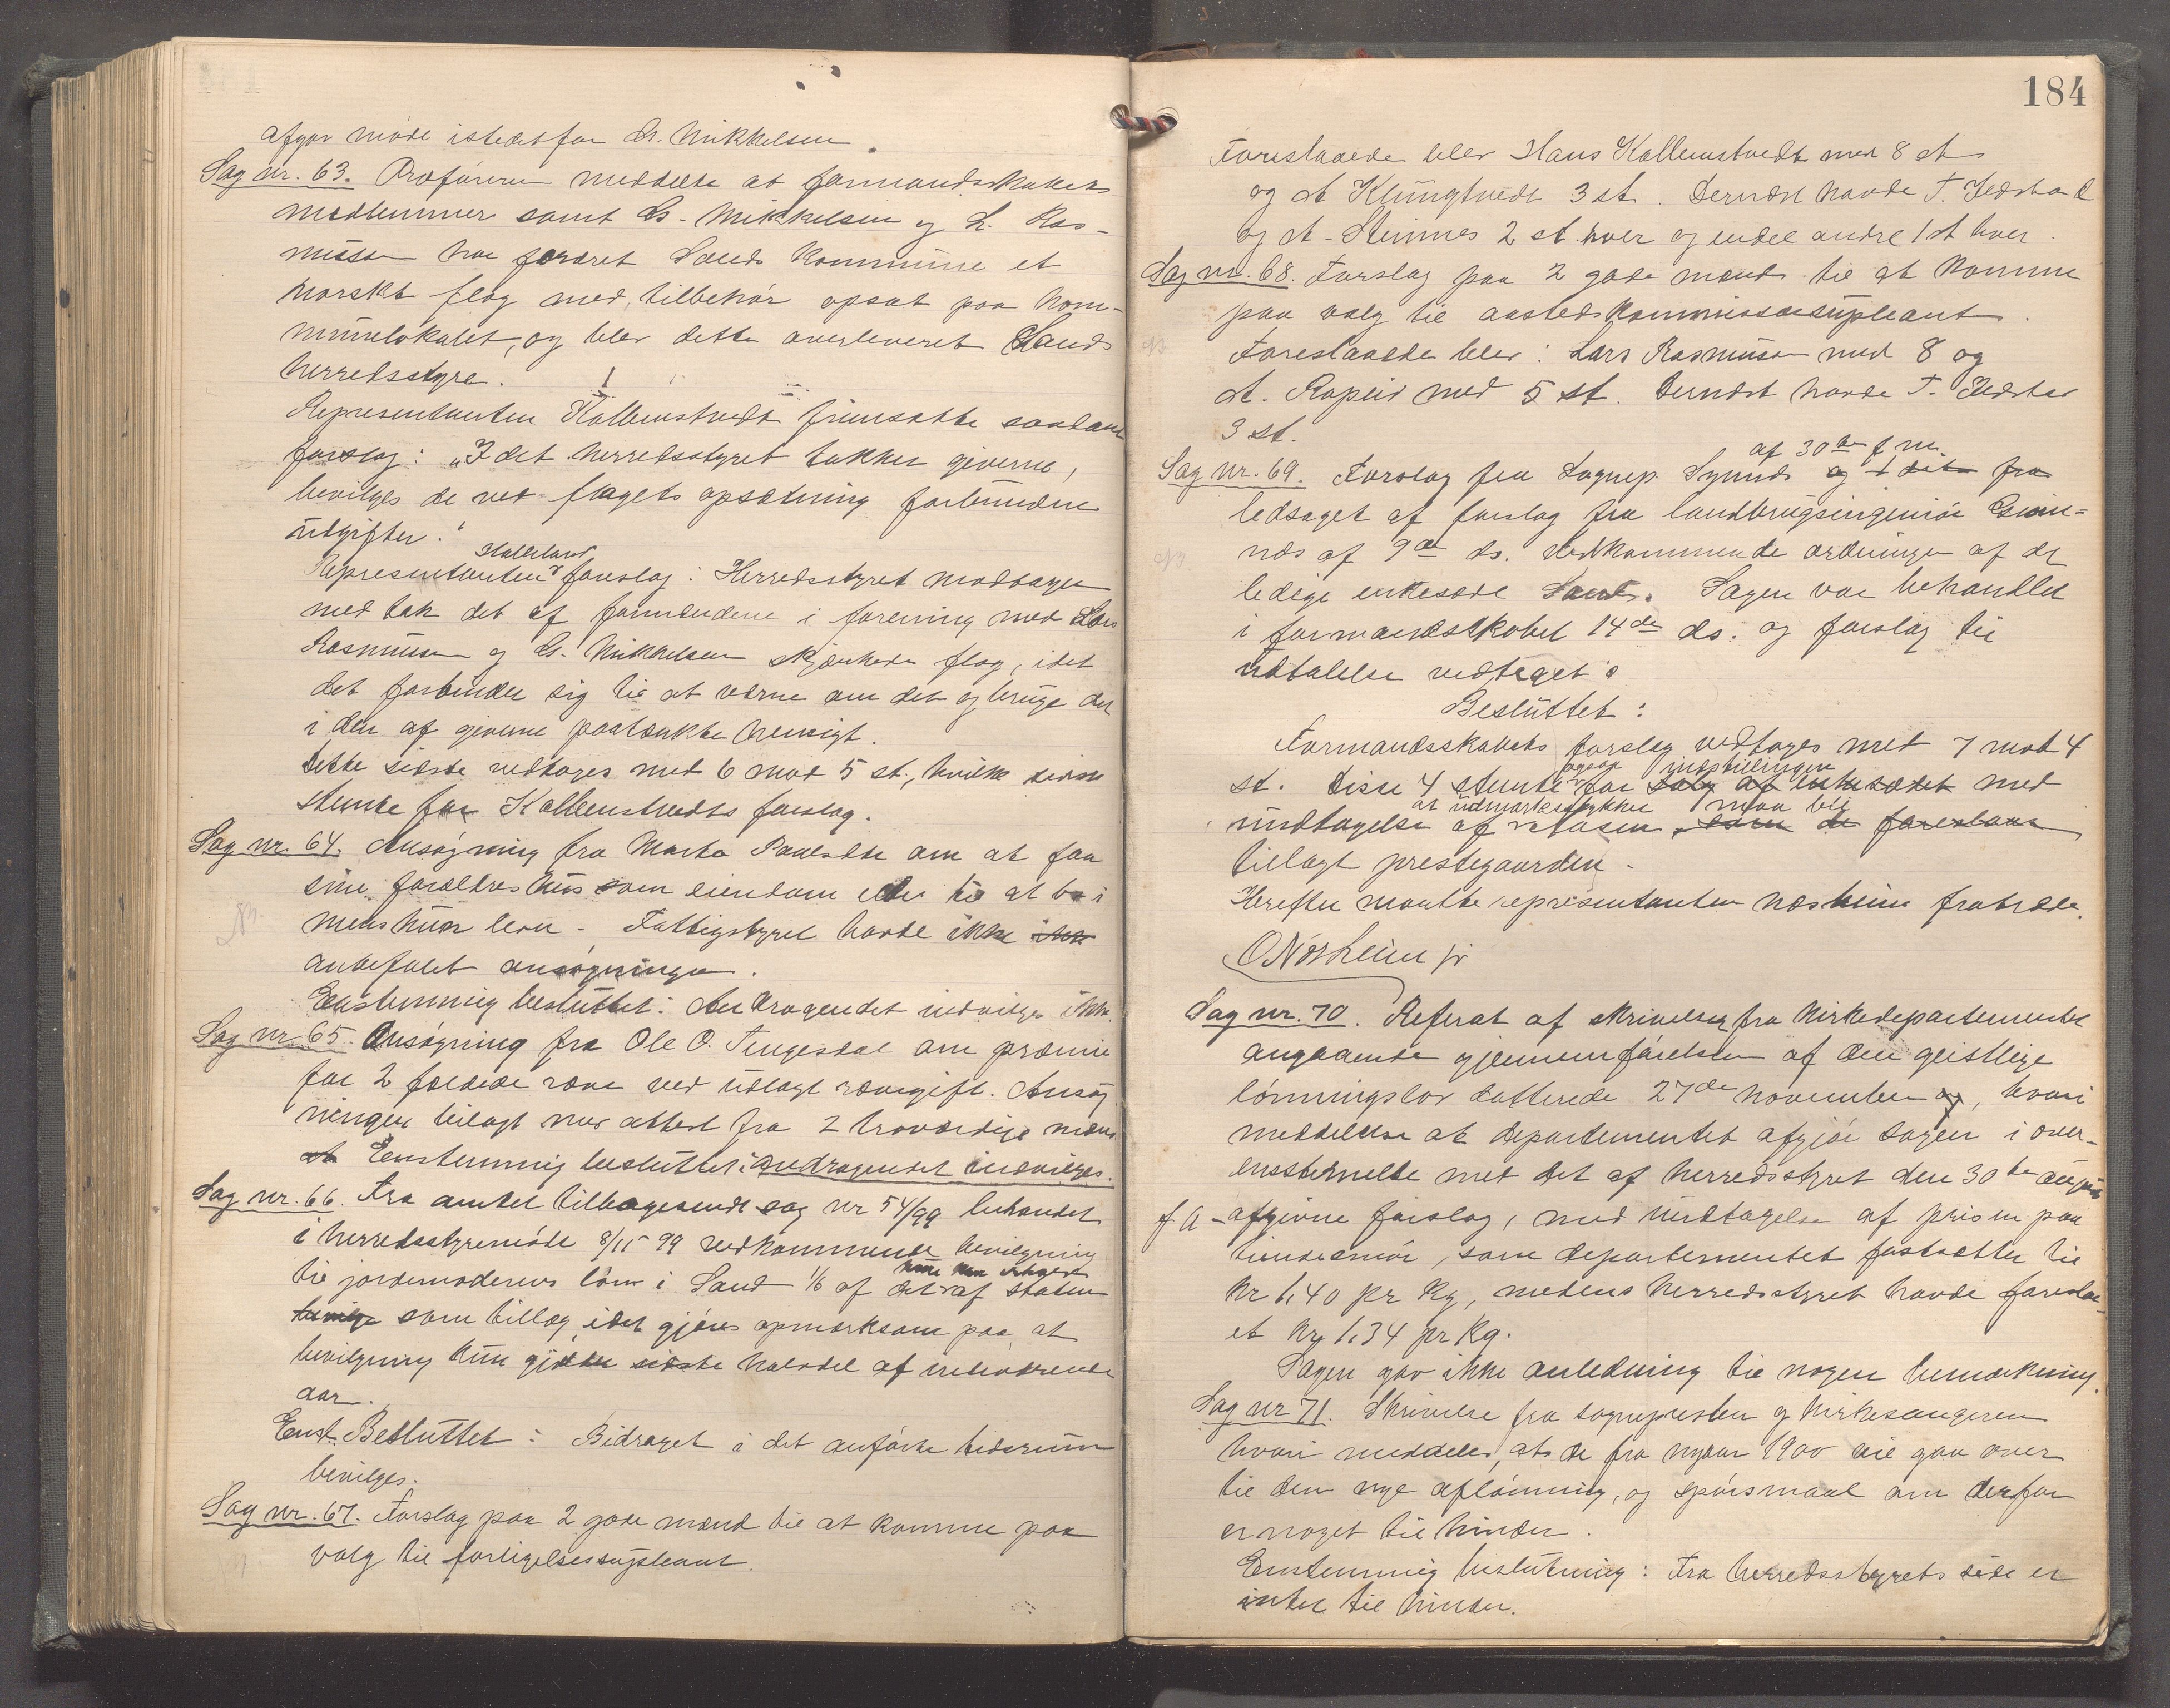 afgav møde istedetfor G. Mikkelsen.
Sag nr. 63. Ordføreren meddelte at formandskabets
medlemmer samt G. Mikkelsen og L. Ras-
mussen har foræret Sands kommune et
norskt flag med tilbehør opsat paa kom-
munelokalet, og blev dette overleveret Sands
herredsstyre.
Representanten Kolbenstvedt fremsatte saadant
forslag: „Idet herredsstyret takker giverne,
bevilges de ved flagets opsætning forbundne
udgifter."
Halleland
Representanten s forslag: Herredsstyret modtager
med tak det af formændene i forening med Lars
Rasmussen og G. Mikkelsen skjænkede flag, idet
det forbinder sig til at værne om det og bruge det
i den af giverne paatænkte hensigt.
Dette sidste vedtoges med 6 mod 5 st., hvilke sidste
stemte for Kolbenstvedts forslag.
Sag nr. 64. Ansøgning fra Marta om at faa
sine forældres hus som eiendom eller til at bo i
mens hun lever. Fattigstyret havde ikke ikke
anbefalet ansøgningen.
Enstemmig besluttet: Andragendet indvilges ikke.
Sag nr. 65. Ansøgning fra Ole O. Tengesdal om præmie
for 2 fældede ræve ved udlagt rævegift. Ansøg
ningen bilagt med attest fra 2 troværdige mænd
at Enstemmig besluttet: andragendet indvilges.
Sag nr. 66. Fra amtet tilbagesendt sag nr 54/99 behandlet
i herredsstyremøde 8/11 99 vedkommende bevilgning
til jordemoderens løn i Sand 1/6 af det af staten
bevilge som tillæg, idet gjøres opmærksom paa, at
bevilgning kun gjælder sidste halvdel af indeværende
aar.
Enst. Besluttet: Bidraget i det anførte tidsrum
bevilges.
Sag nr. 67. Forslag paa 2 gode mænd til at komme paa
valg til forligelsessupleant.
184
Foreslaaede blev Hans Kolbenstvedt med 8 st
og st Klungtvedt 3 st. Dernæst havde T. Hedstad
og st. Steinnes 2 st. hver og endel andre 1 st hver.
Sag nr. 68. Forslag paa 2 gode mænd til at komme
paa valg til aastedskommissæsupleant.
Foreslaaede blev: Lars Rasmussen med 8 og
st. Rapeid med 5 st. Dernæst havde T. Hedstad
3 st.
af 30te f. m.
Sag nr. 69. Forslag fra Sognep. Synnds og fra
ledsaget af forslag fra landbrugsingeniør
af 9de ds. vedkommende ordningen af det
ledige enkesæde Sand. Sagen var behandlet
i formandskabet 14de ds. og forslag til
udtalelse vedtaget
Besluttet:
Formandsskabets forslag vedtoges med 7 mod 4
ogsaa indstillingen
st. Disse 4 stemte for salg af enkesædet med
at udmarkstykket maa bli
undtagelse af som de foreslaar
tillagt prestegaarden.
Herefter maatte representanten Næsheim fratræde.
O Næsheim jr
Sag nr. 70. Referat af skrivelse fra kirkedepartementet
angaaende gjennemførelsen af den geistlige
lønningslov datterede 27de november og, hvori
meddeles at departementet afgjør sagen i over-
ensstemmelse med det af herredsstyret den 30te august
f a - afgivne forslag, med undtagelse af prisen paa
tiendesmør, som departementet fastsætter til
kr 1,40 pr kg, medens herredsstyret havde foreslaa-
et kr 1.34 pr kg.
Sagen gav ikke anledning til nogen bemerkning.
Sag nr 71. Skrivelse fra sognepresten og kirkesangeren
hvori meddeles, at de fra nytaar 1900 vil gaa over
til den nye aflønning, og spørsmaal om derfor
er noget til hinder.
Enstemmig beslutning: Fra herredsstyrets side er
intet til hinder.